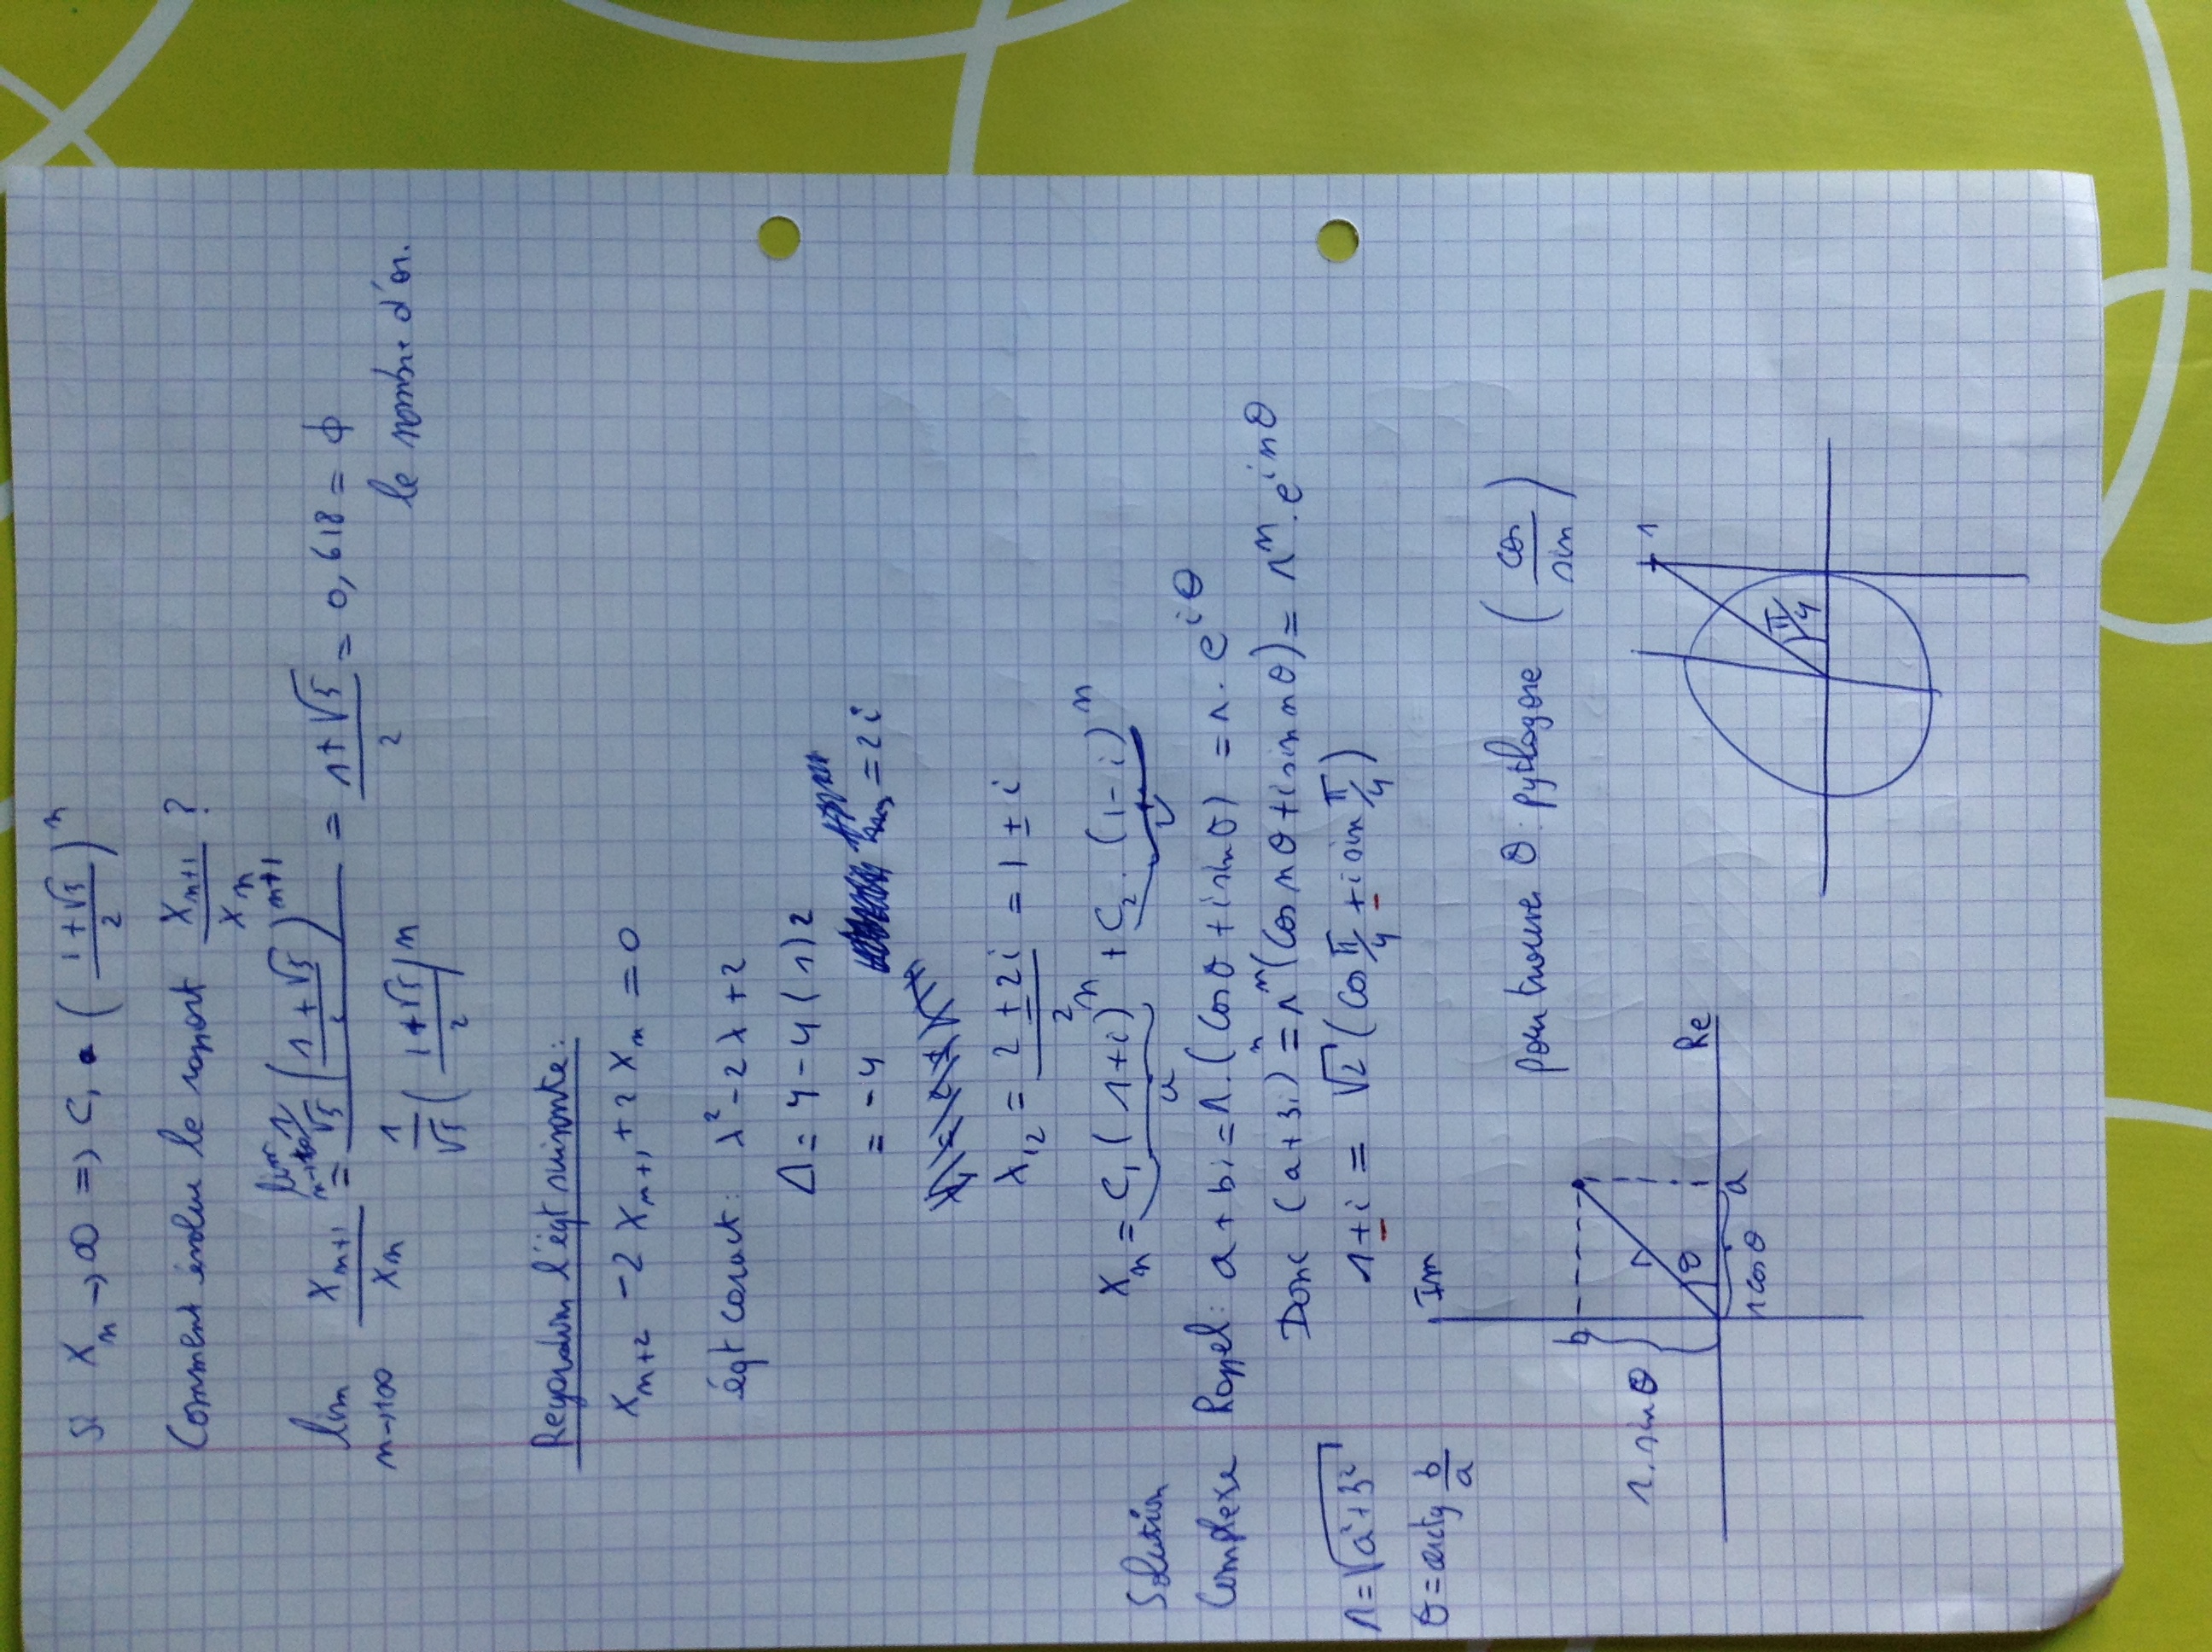 Si Xn → ∞ ⇒ C₁ • ((1+√5)/2)^n
Comment évolue le rapport X_{n+1}/X_n ?
lim n→+∞ X_{n+1}/X_n = lim n→+∞ (1/√5 ((1+√5)/2)^{n+1}) / (1/√5 ((1+√5)/2)^n) = (1+√5)/2 = 0,618 = ϕ
le nombre d'or.
Regardons l'éqt suivante :
X_{n+2} - 2X_{n+1} + 2X_n = 0
éqt caract : λ² - 2λ + 2
Δ = 4 - 4(1)2
= -4 = 2i
λ₁₂ = (2 ± 2i)/2 = 1 ± i
X_n = C₁(1+i)^n + C₂.(1-i)^n
u v
Solution
Complexe Rappel : a + bi = r.(cosθ + isinθ) = r.e^{iθ}
Donc (a+bi)^n = r^n(cos nθ + i sin nθ) = r^n.e^{inθ}
r = √(a²+b²) 1 ± i = √2 (cos π/4 ± i sin π/4)
θ = arctg b/a
Im
pour trouver θ : pythagore (cos/sin)
b
r
r.sinθ
θ
Re
a
rcosθ
1
π/4